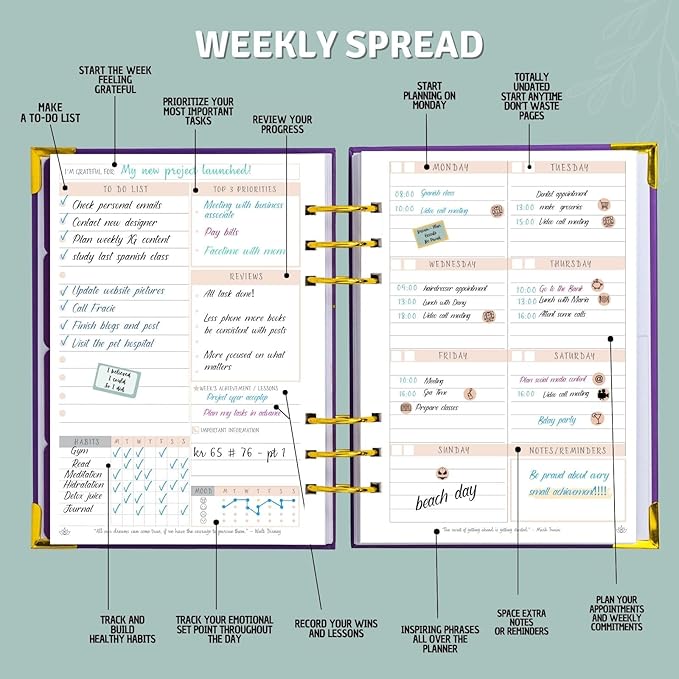 WEEKLY SPREAD
START THE WEEK
FEELING
GRATEFUL
MAKE
A TO-DO LIST
PRIORITIZE YOUR
MOST IMPORTANT
TASKS
REVIEW YOUR
PROGRESS
START
PLANNING ON
MONDAY
TOTALLY
UNDATED
START ANYTIME
DON'T WASTE
PAGES
I'M GRATEFUL FOR: My new project launched!
TO DO LIST
Check personal emails
Contact new designer
Plan weekly IG content
study last spanish class
Update website pictures
Call Fracie
Finish blogs and post
Visit the pet hospital
I believed
I could
So I did
TOP 3 PRIORITIES
Meeting with business
associate
Pay bills
Facetime with mom
REVIEWS
All task done!
Less phone more books
be consistent with posts
More focused on what
matters
WEEK'S ACHIEVEMENT / LESSONS
Project offer
Plan my tasks in advance
IMPORTANT INFORMATION
kr 65 # 76 - pt 1
HABITS M T W T F S S
Gym
Read
Meditation
Hidratation
Detox juice
Journal
MOOD M T W T F S S
"All our dreams can come true, if we have the courage to pursue them." - Walt Disney
MONDAY
08:00 Spanish class
10:00 Video call meeting
TUESDAY
Dentist appointment
13:00 make groceries
15:00 Video call meeting
WEDNESDAY
09:00 hairdresser appointment
13:00 Lunch with Dany
18:00 Video call meeting
THURSDAY
10:00 Go to the Bank
13:00 Lunch with Maria
16:00 Attend some calls
FRIDAY
10:00 Meeting
16:00 Spa Time
Prepare classes
SATURDAY
Plan social media content
16:00 Video call meeting
Baby party
SUNDAY
beach day
NOTES/REMINDERS
Be proud about every
small achievement!!!!
"The secret of getting ahead is getting started." - Mark Twain
TRACK AND
BUILD
HEALTHY HABITS
TRACK YOUR EMOTIONAL
SET POINT THROUGHOUT
THE DAY
RECORD YOUR WINS
AND LESSONS
INSPIRING PHRASES
ALL OVER THE
PLANNER
SPACE EXTRA
NOTES
OR REMINDERS
PLAN YOUR
APPOINTMENTS
AND WEEKLY
COMMITMENTS